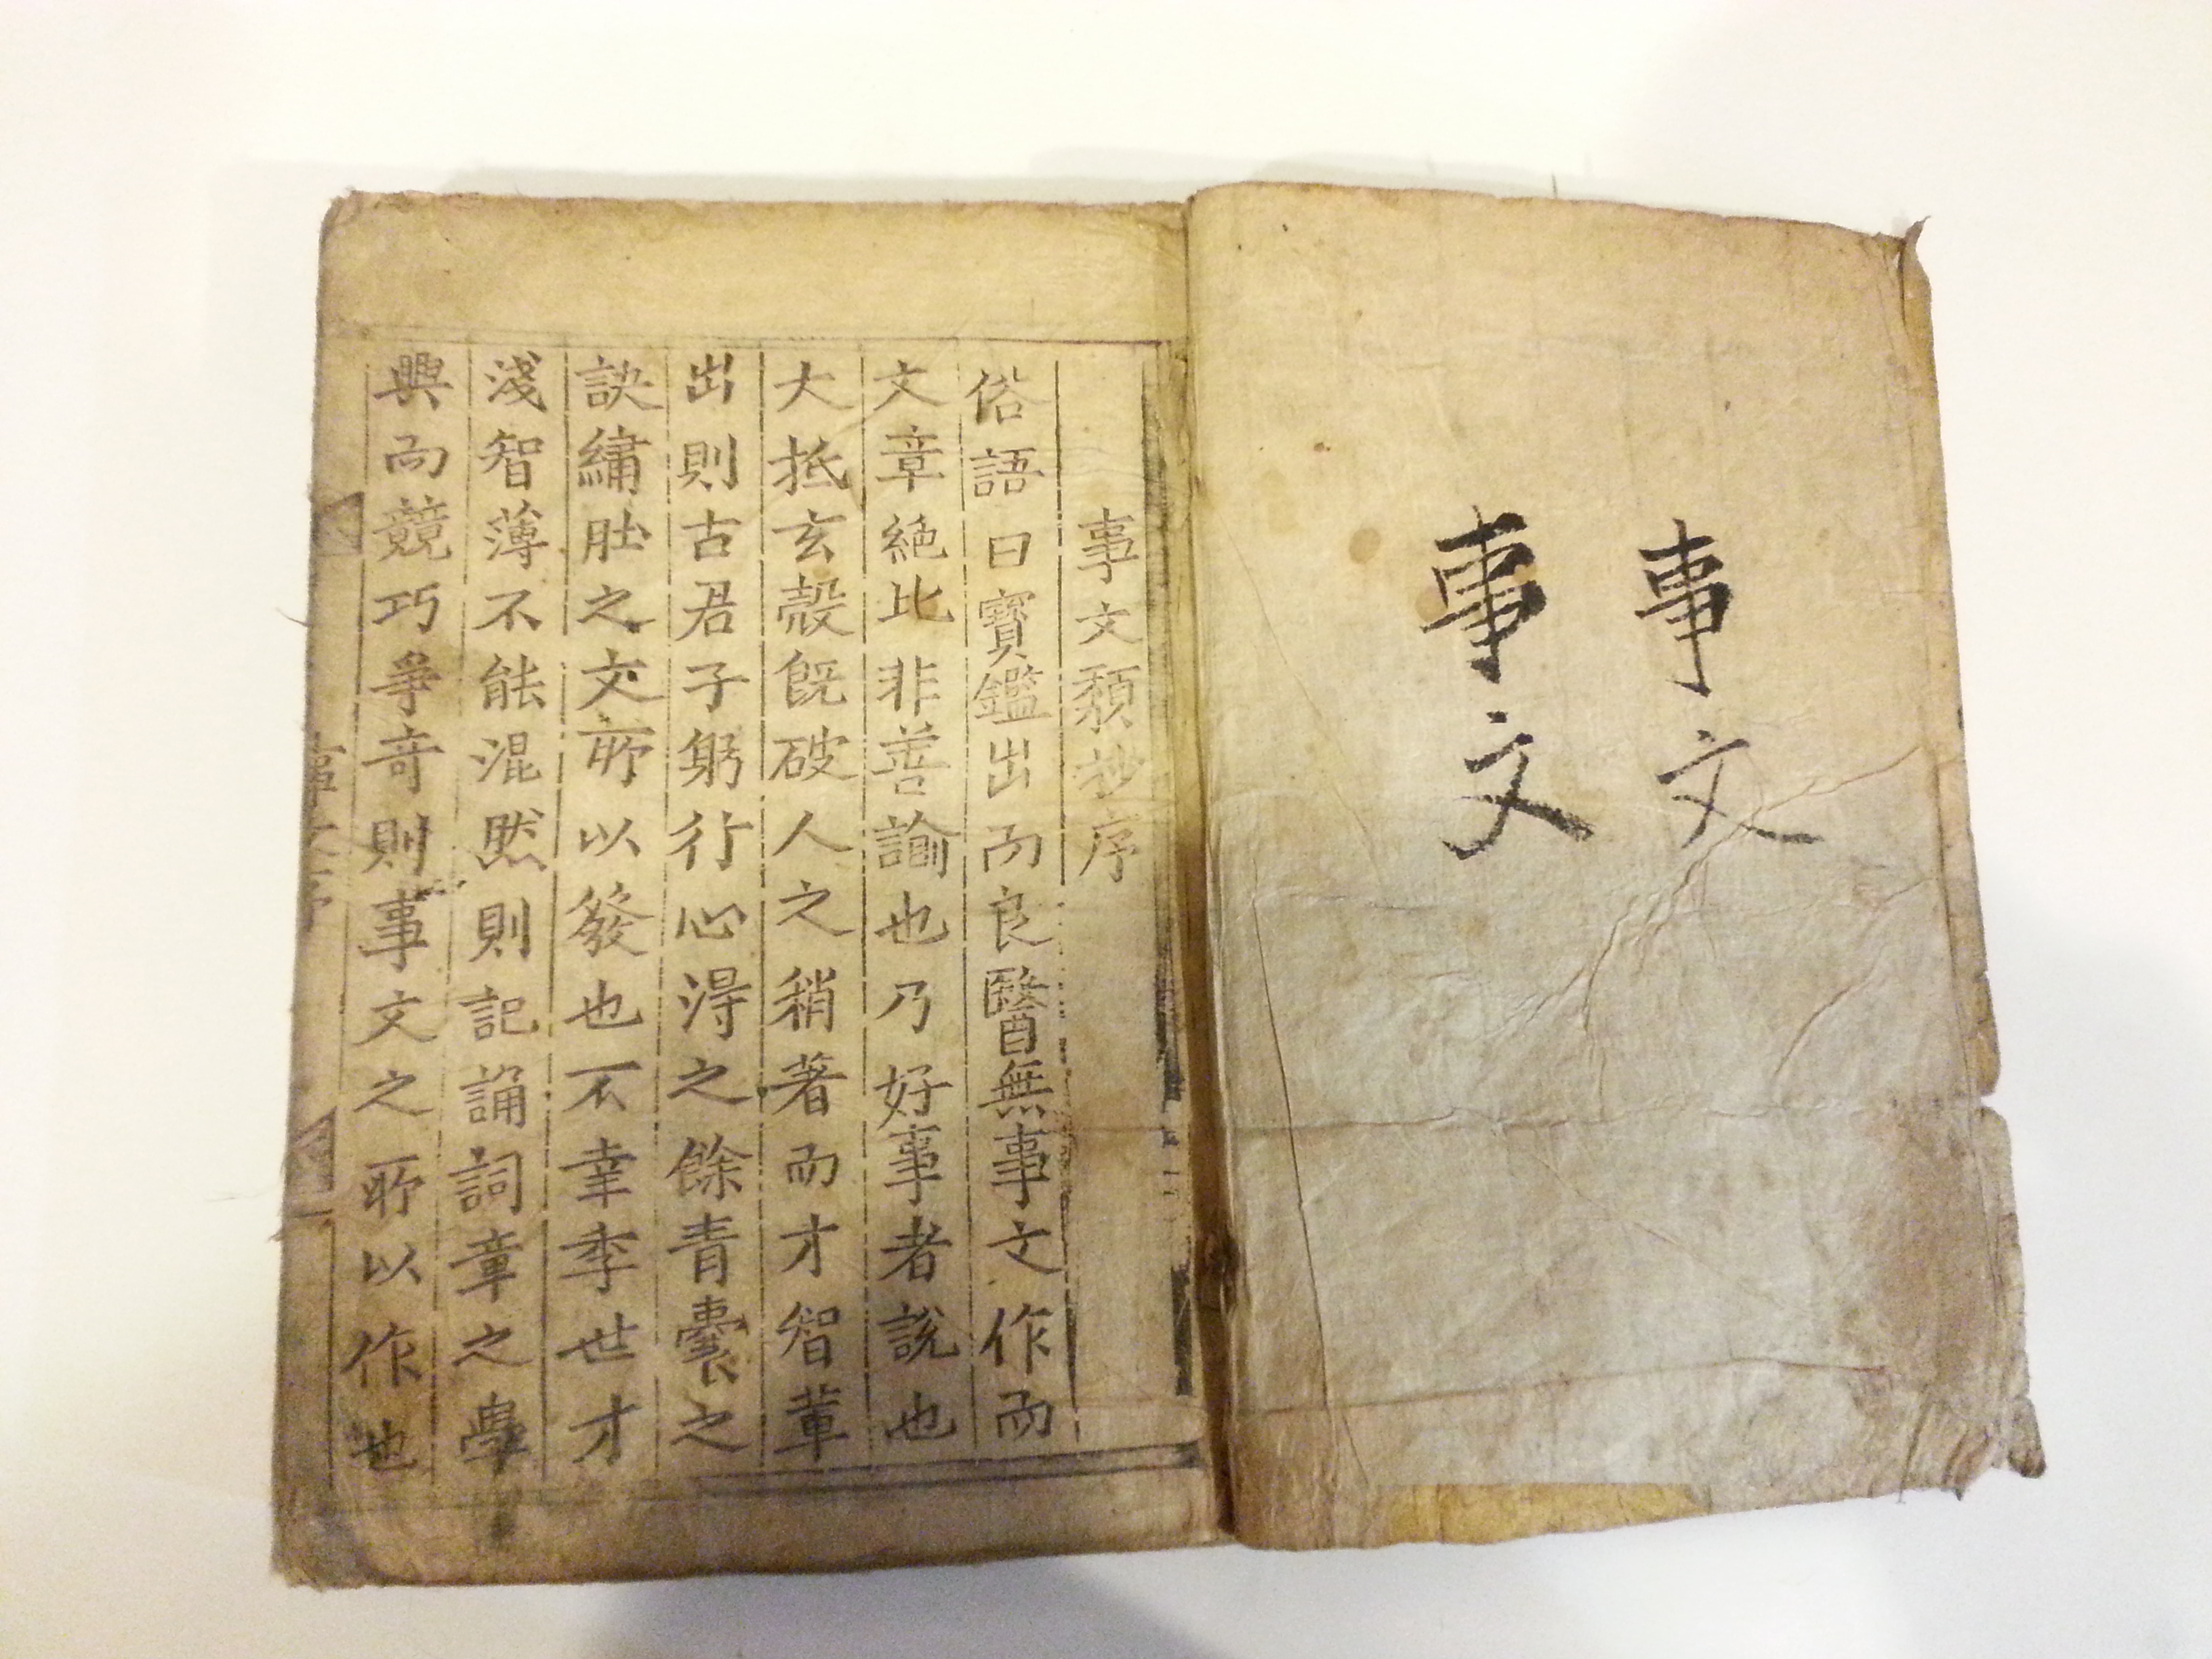 事文
事文
事文類抄序
俗語曰寳鑑出而良醫無事文作而
文章絶比非善諭也乃好事者説也
大抵玄殼旣破人之稍著而才智軰
出則古君子躬行心淂之餘青囊之
訣繡肚之文所以發也不幸季世才
淺智薄不能混然則記誦詞章之學
興而競巧爭竒則事文之所以作也
事文序